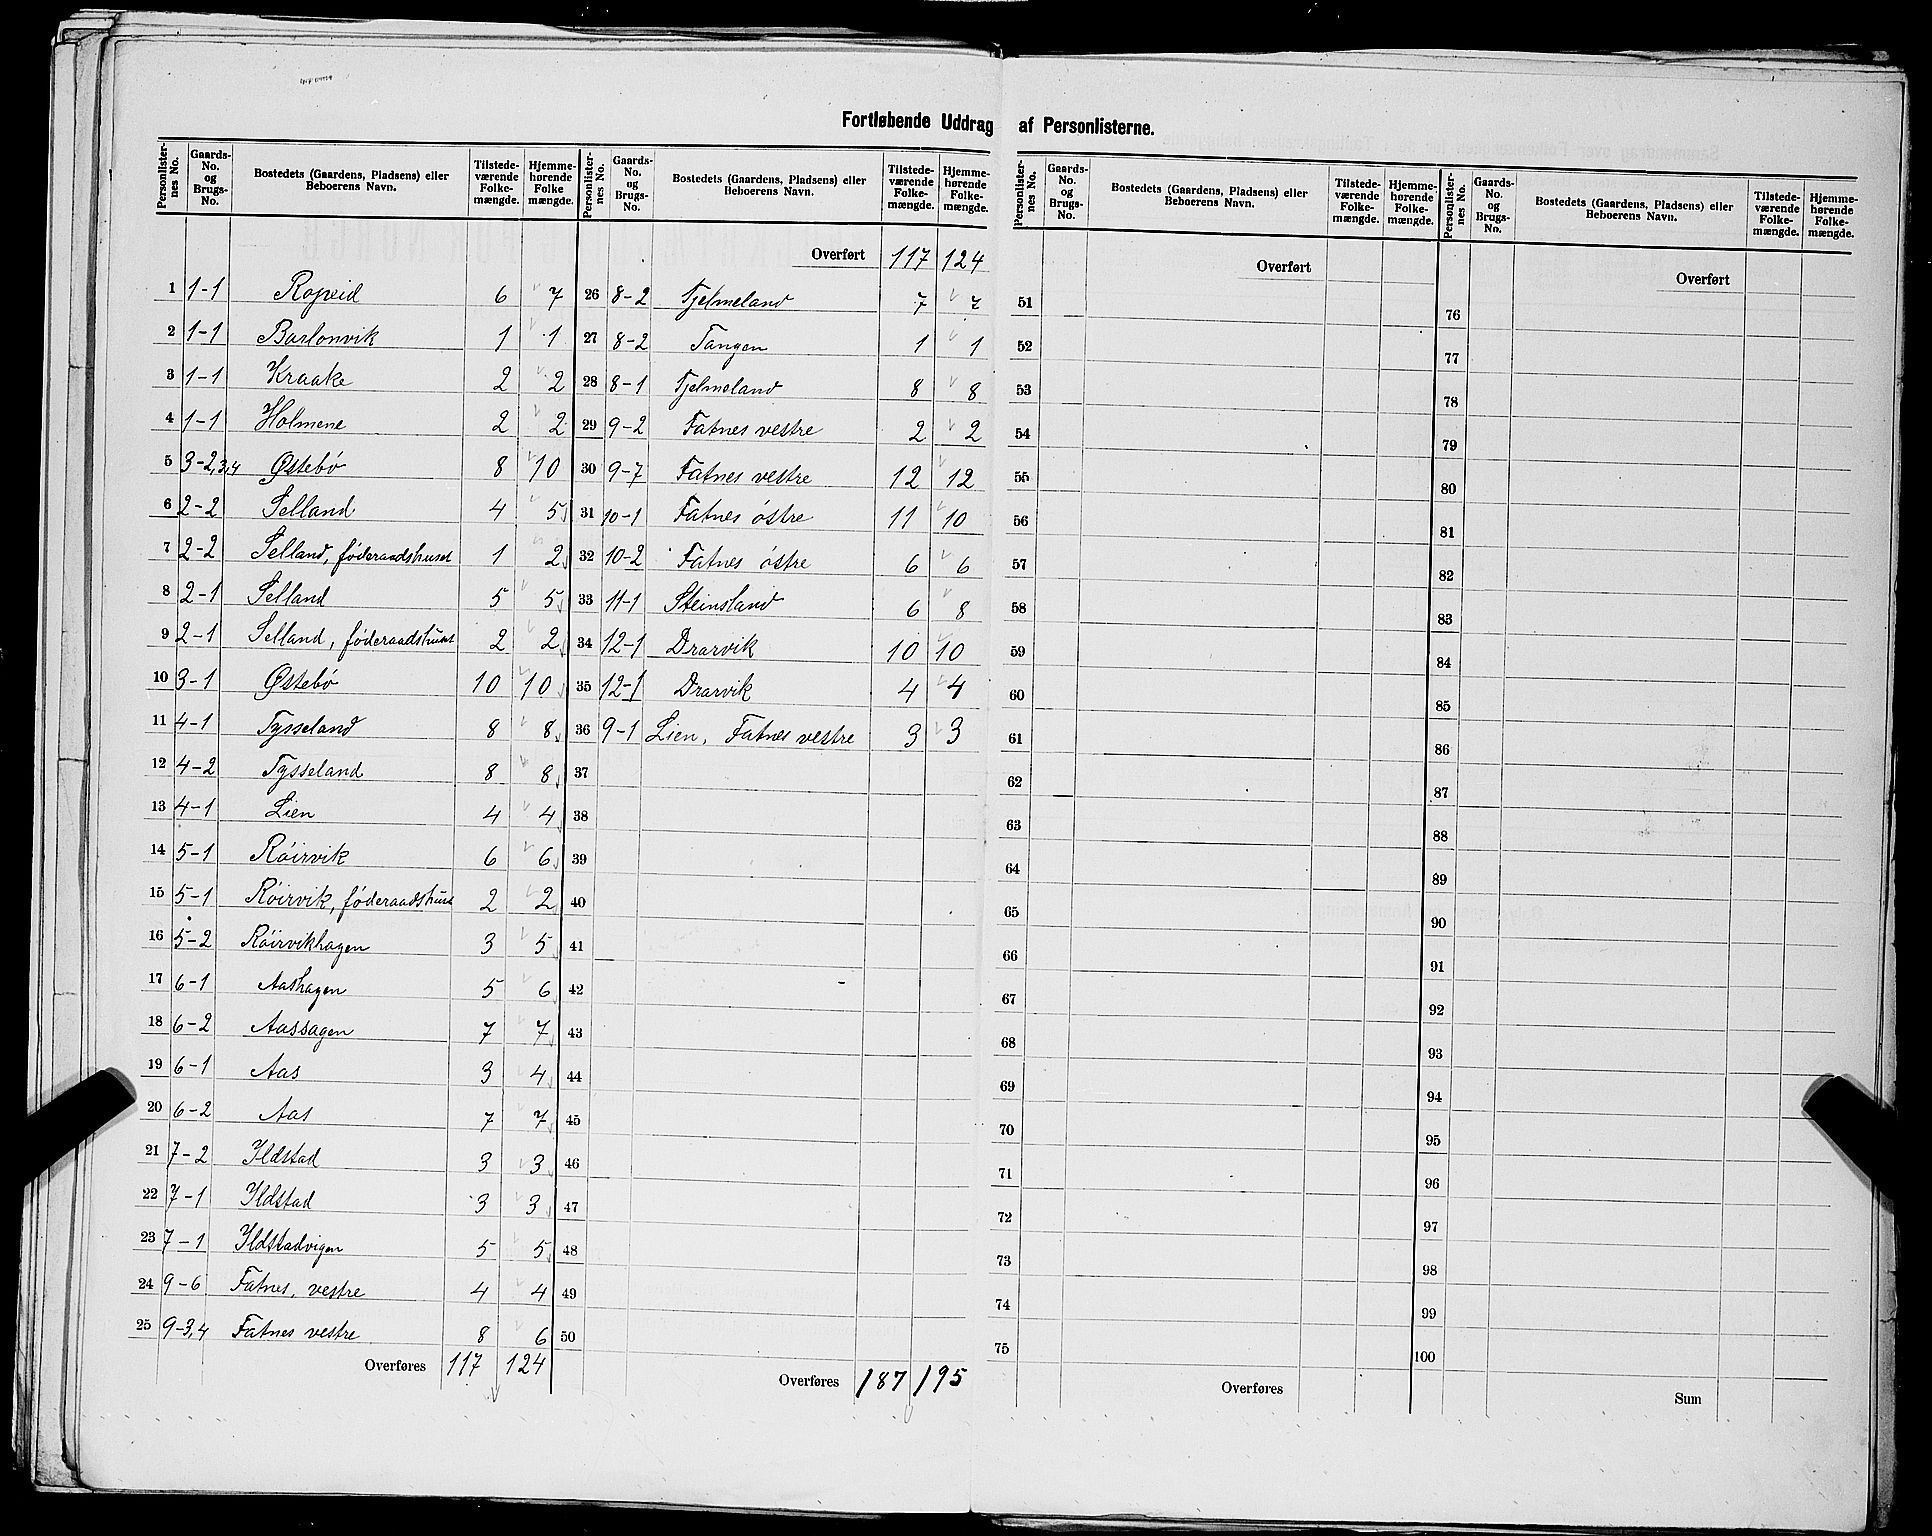 Fortløbende Uddrag af Personlisterne.
Personlister-nes No. | Gaards-No. og Brugs-No. | Bostedets (Gaardens, Pladsens) eller Beboerens Navn. | Tilstede-værende Folke-mængde. | Hjemme-hørende Folke mængde.
1 1-1 Ropeid 6 7
2 1-1 Barlonvik 1 1
3 1-1 Kraake 2 2
4 1-1 Holmene 2 2
5 3-2,3,4 Østebø 8 10
6 2-2 Selland 4 5
7 2-2 Selland, føderaadshuset 1 2
8 2-1 Selland 5 5
9 2-1 Selland, føderaadshuset 2 2
10 3-1 Østebø 10 10
11 4-1 Tysseland 8 8
12 4-2 Tysseland 8 8
13 4-1 Lien 4 4
14 5-1 Röirvik 6 6
15 5-1 Röirvik, føderaadshuset 2 2
16 5-2 Röirvikhagen 3 5
17 6-1 Aashagen 5 6
18 6-2 Aassagen 7 7
19 6-1 Aas 3 4
20 6-2 Aas 7 7
21 7-2 Ildstad 3 3
22 7-1 Ildstad 3 3
23 7-1 Ildstadvigen 5 5
24 9-6 Fatnes, vestre 4 4
25 9-3,4 Fatnes vestre 8 6
Overføres 117 124
Personlister-nes No. | Gaards-No. og Brugs-No. | Bostedets (Gaardens, Pladsens) eller Beboerens Navn. | Tilstede-værende Folke-mængde. | Hjemme-hørende Folke-mængde.
Overført 117 124
26 8-2 Tjelmeland 7 7
27 8-2 Tangen 1 1
28 8-1 Tjelmeland 8 8
29 9-2 Fatnes vestre 2 2
30 9-7 Fatnes vestre 12 12
31 10-1 Fatnes östre 11 10
32 10-2 Fatnes östre 6 6
33 11-1 Steinsland 6 8
34 12-1 Drarvik 10 10
35 12-1 Drarvik 4 4
36 9-1 Lien, Fatnes vestre 3 3
37
38
39
40
41
42
43
44
45
46
47
48
49
50
Overføres 187 195
Personlister-nes No. | Gaards-No. og Brugs-No. | Bostedets (Gaardens, Pladsens) eller Beboerens Navn. | Tilstede-værende Folke-mængde. | Hjemme-hørende Folke-mængde.
Overført
51
52
53
54
55
56
57
58
59
60
61
62
63
64
65
66
67
68
69
70
71
72
73
74
75
Overføres
Personlister-nes No. | Gaards-No. og Brugs-No. | Bostedets (Gaardens, Pladsens) eller Beboerens Navn. | Tilstede-værende Folke-mængde. | Hjemme-hørende Folke-mængde.
Overført
76
77
78
79
80
81
82
83
84
85
86
87
88
89
90
91
92
93
94
95
96
97
98
99
100
Sum